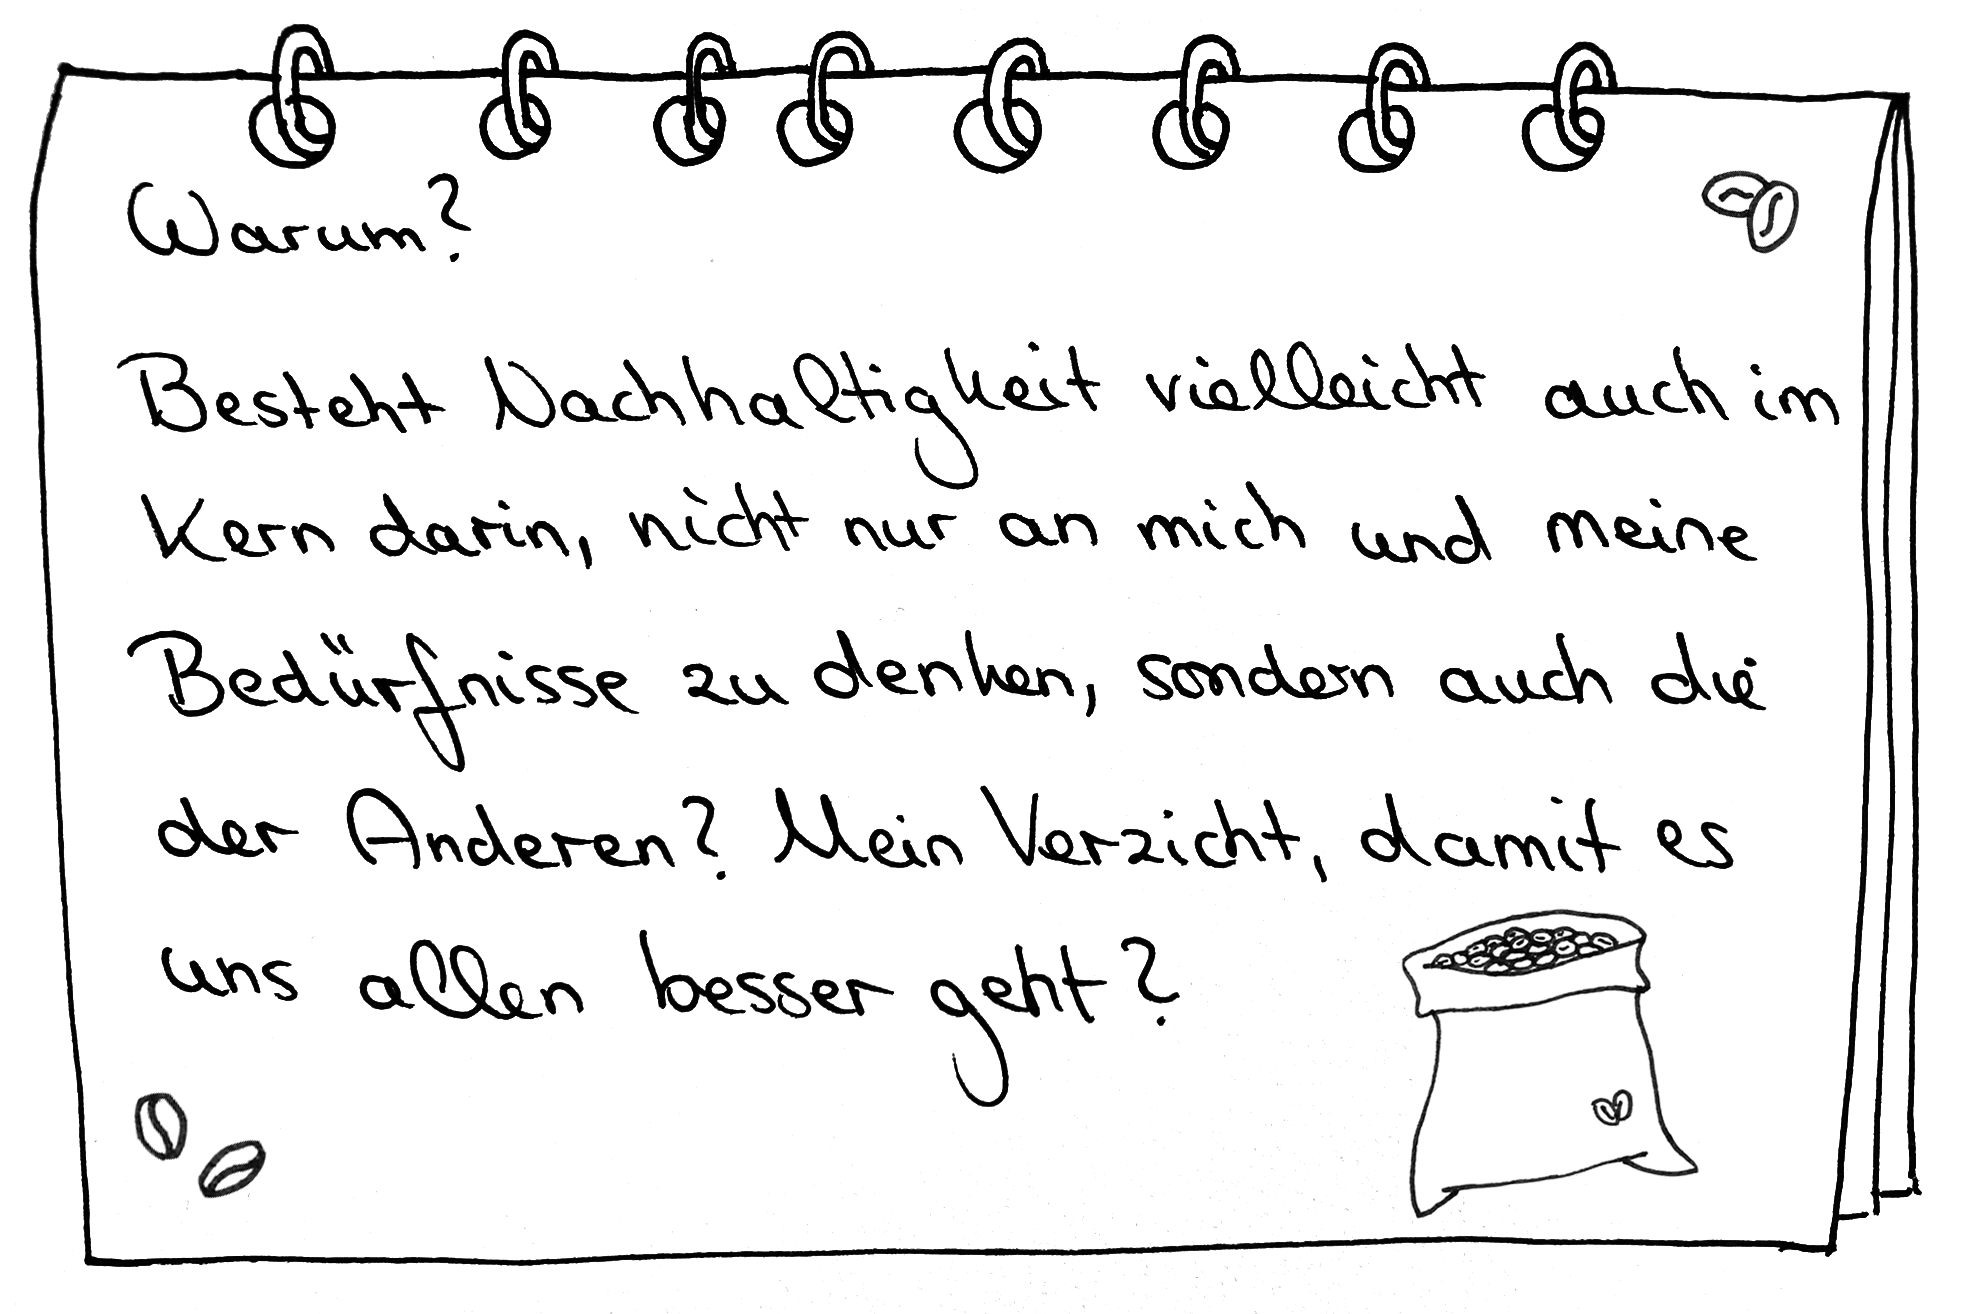 Warum?
Besteht Nachhaltigkeit vielleicht auch im
Kern darin, nicht nur an mich und meine
Bedürfnisse zu denken, sondern auch die
der Anderen? Mein Verzicht, damit es
uns allen besser geht?